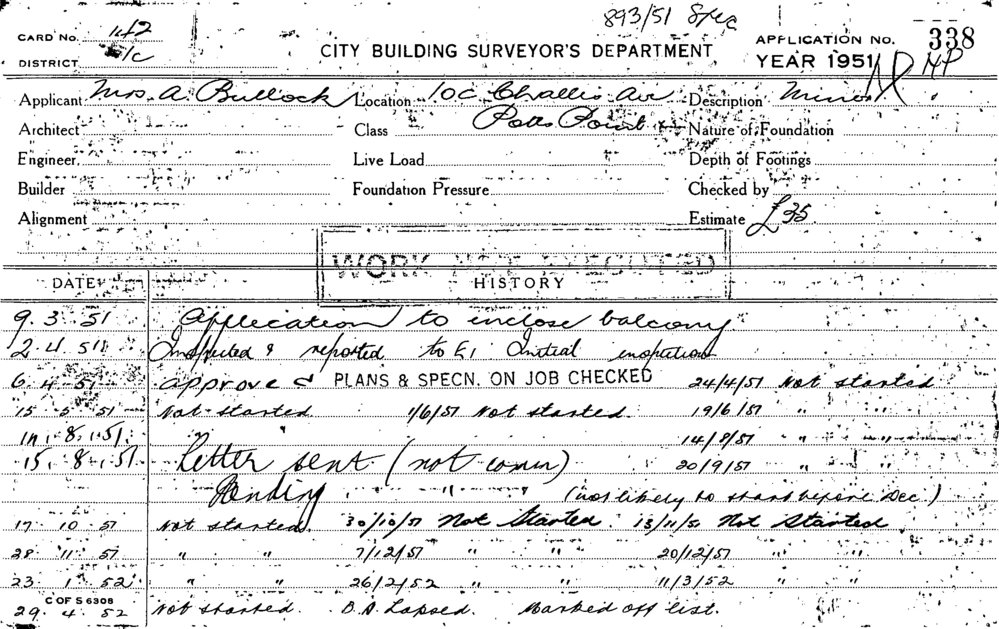 893/51 Spec
CARD NO. 142
DISTRICT
CITY BUILDING SURVEYOR'S DEPARTMENT
APPLICATION NO. 338
YEAR 1951
Applicant Mrs. A. Bullock Location 10c Challis Av Description Minor
Architect Class Potts Point Nature of Foundation
Engineer Live Load Depth of Footings
Builder Foundation Pressure Checked by
Alignment Estimate £35
WORK NOT EXECUTED
DATE HISTORY
9.3.51 Application to inclose balcony
2.4.51 Inspected & reported to E1 Initial inspection
6.4.51 Approved PLANS & SPECN. ON JOB CHECKED 24/4/51 Not started
15.5.51 Not started 1/6/51 Not started. 19/6/51 " "
14.8.51 14/8/51 " "
15.8.51 Letter sent (not comm) 20/9/51 " "
Pending " " (not likely to start before Dec.)
17.10.51 Not started. 30/10/51 Not Started. 13/11/51 Not Started
28 11 51 " " 7/12/51 " " 20/12/51 " "
23 1 52 " " 26/2/52 " " 11/3/52 " "
C OF S 6308
29.4.52 Not started. B.A. Lapsed. Marked off list.